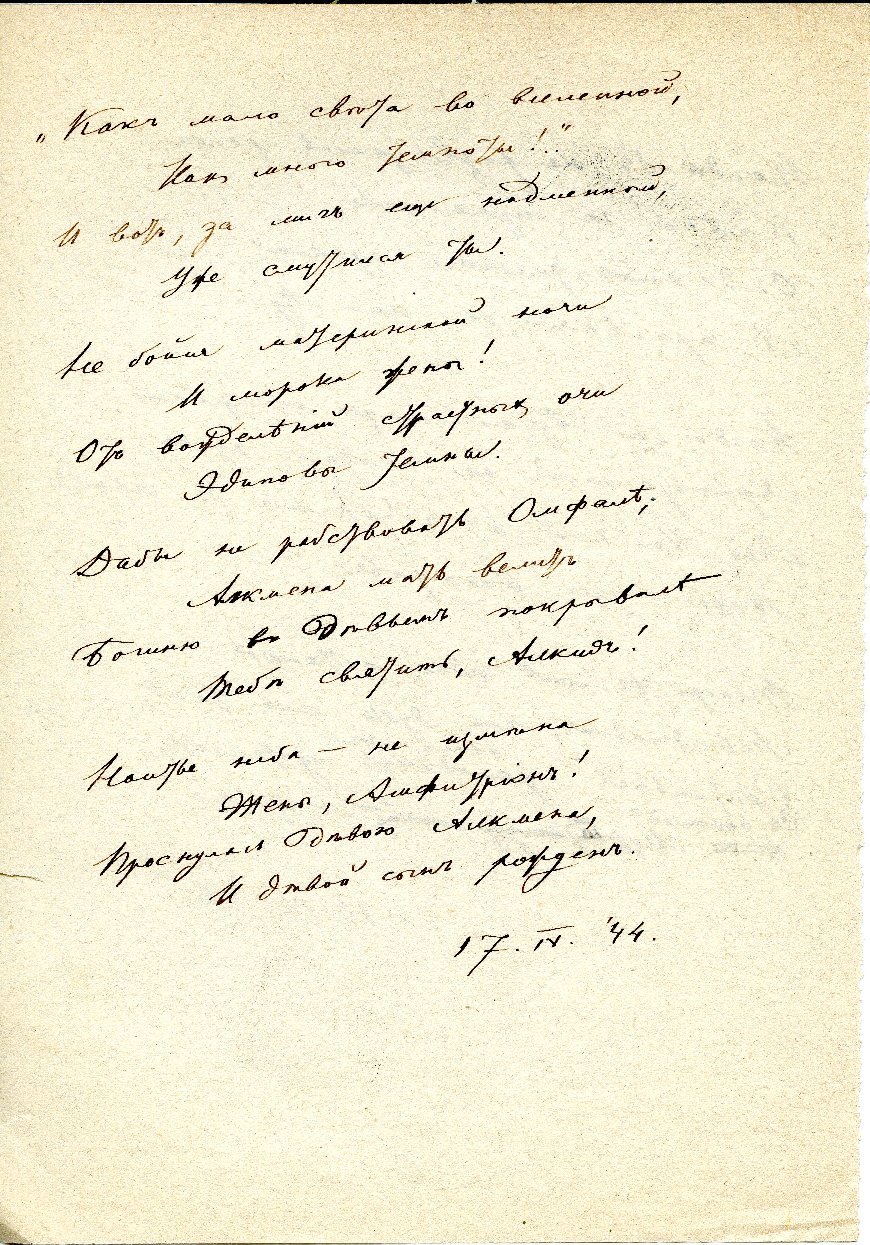 „Какъ мало свѣта во вселенной,
Какъ много темноты!.."
И вотъ, за мигъ еще надменной,
Уже смутился ты.
Не бойся материнской ночи
И морока жены!
Отъ вожделѣній страстныхъ очи
Эдиповы темны.
Дабы не рабствовать Омфалѣ,
Алкмена мать велитъ
Богиню въ Дѣвьемъ покрывалѣ
Тебѣ святить, Алкидъ!
Наитье неба — не измѣна
Жены, Амфитріонъ!
Проснулась Дѣвою Алкмена,
И дѣвой сынъ рожденъ.
17. IV. '44.